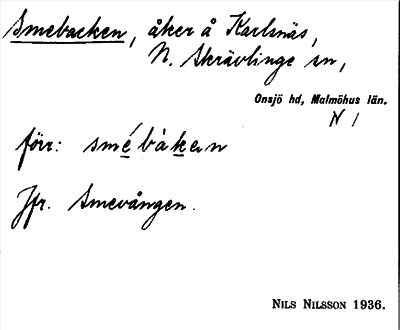 Smebacken, åker å Karlsnäs,
N. Skrävlinge sn,
Onsjö hd, Malmöhus län.
N 1
förr: smébàkɐn
Jfr. Smevången.
NILS NILSSON 1936.